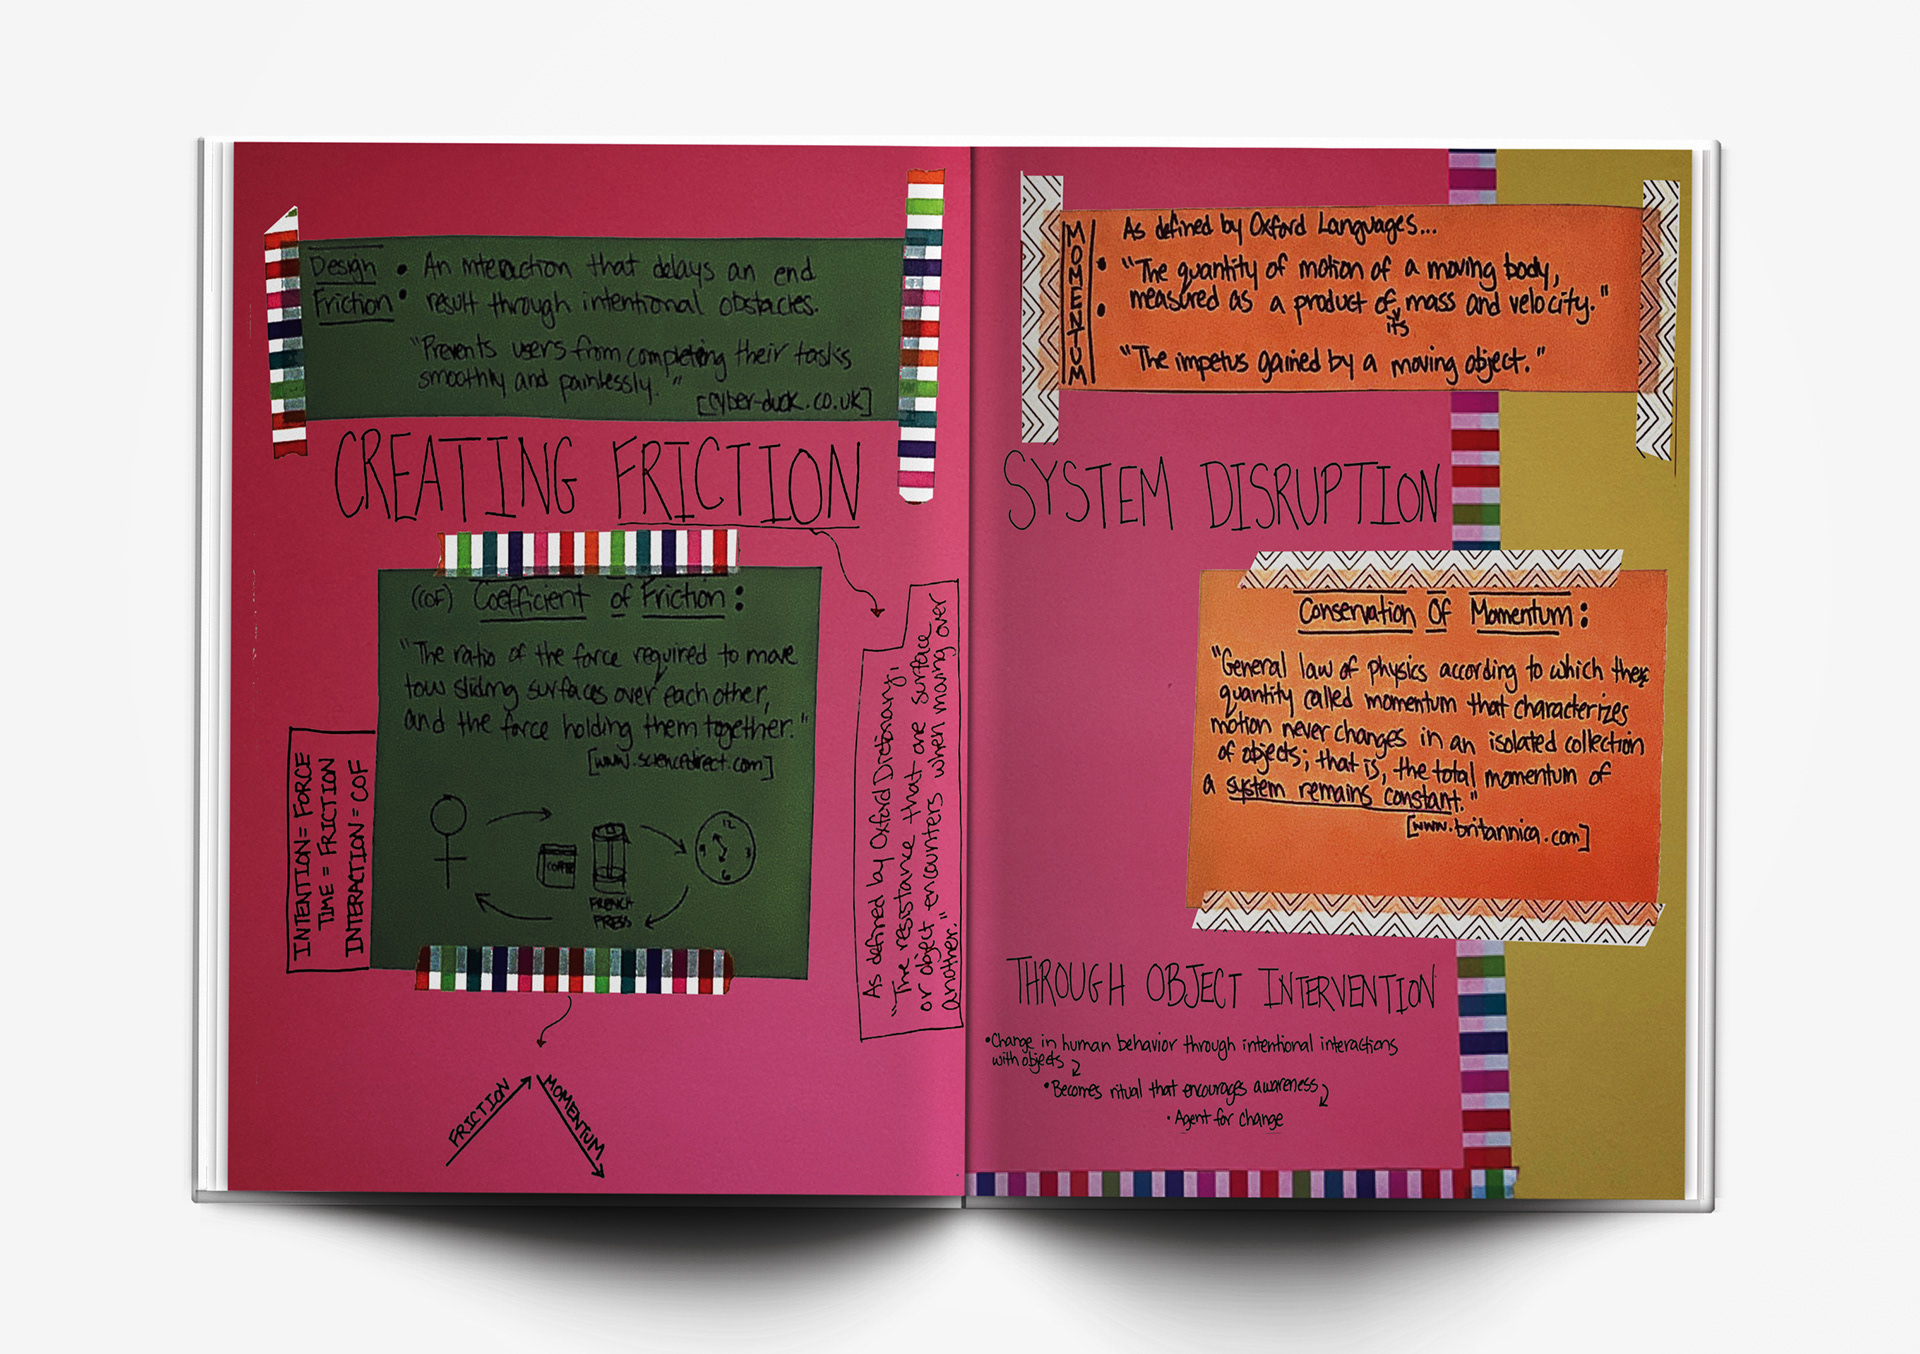 Design
Friction
:
An interaction that delays an end
result through intentional obstacles.
"Prevents users from completing their tasks
smoothly and painlessly."
[cyber-duck.co.uk]
CREATING FRICTION
(COF) Coefficient of Friction:
"The ratio of the force required to move
tow sliding surfaces over each other,
and the force holding them together."
[www.sciencedirect.com]
COFFEE
FRENCH
PRESS
12
3
6
9
INTENTION = FORCE
TIME = FRICTION
INTERACTION = COF
As defined by Oxford Dictionary,
"The resistance that one surface
or object encounters when moving over
another."
FRICTION
MOMENTUM
MOMENTUM
:
As defined by Oxford Languages...
"The quantity of motion of a moving body,
measured as a product of its mass and velocity."
"The impetus gained by a moving object."
SYSTEM DISRUPTION
Conservation Of Momentum:
"General law of physics according to which the
quantity called momentum that characterizes
motion never changes in an isolated collection
of objects; that is, the total momentum of
a system remains constant."
[www.britannica.com]
THROUGH OBJECT INTERVENTION
•Change in human behavior through intentional interactions
with objects
•Becomes ritual that encourages awareness
•Agent for change